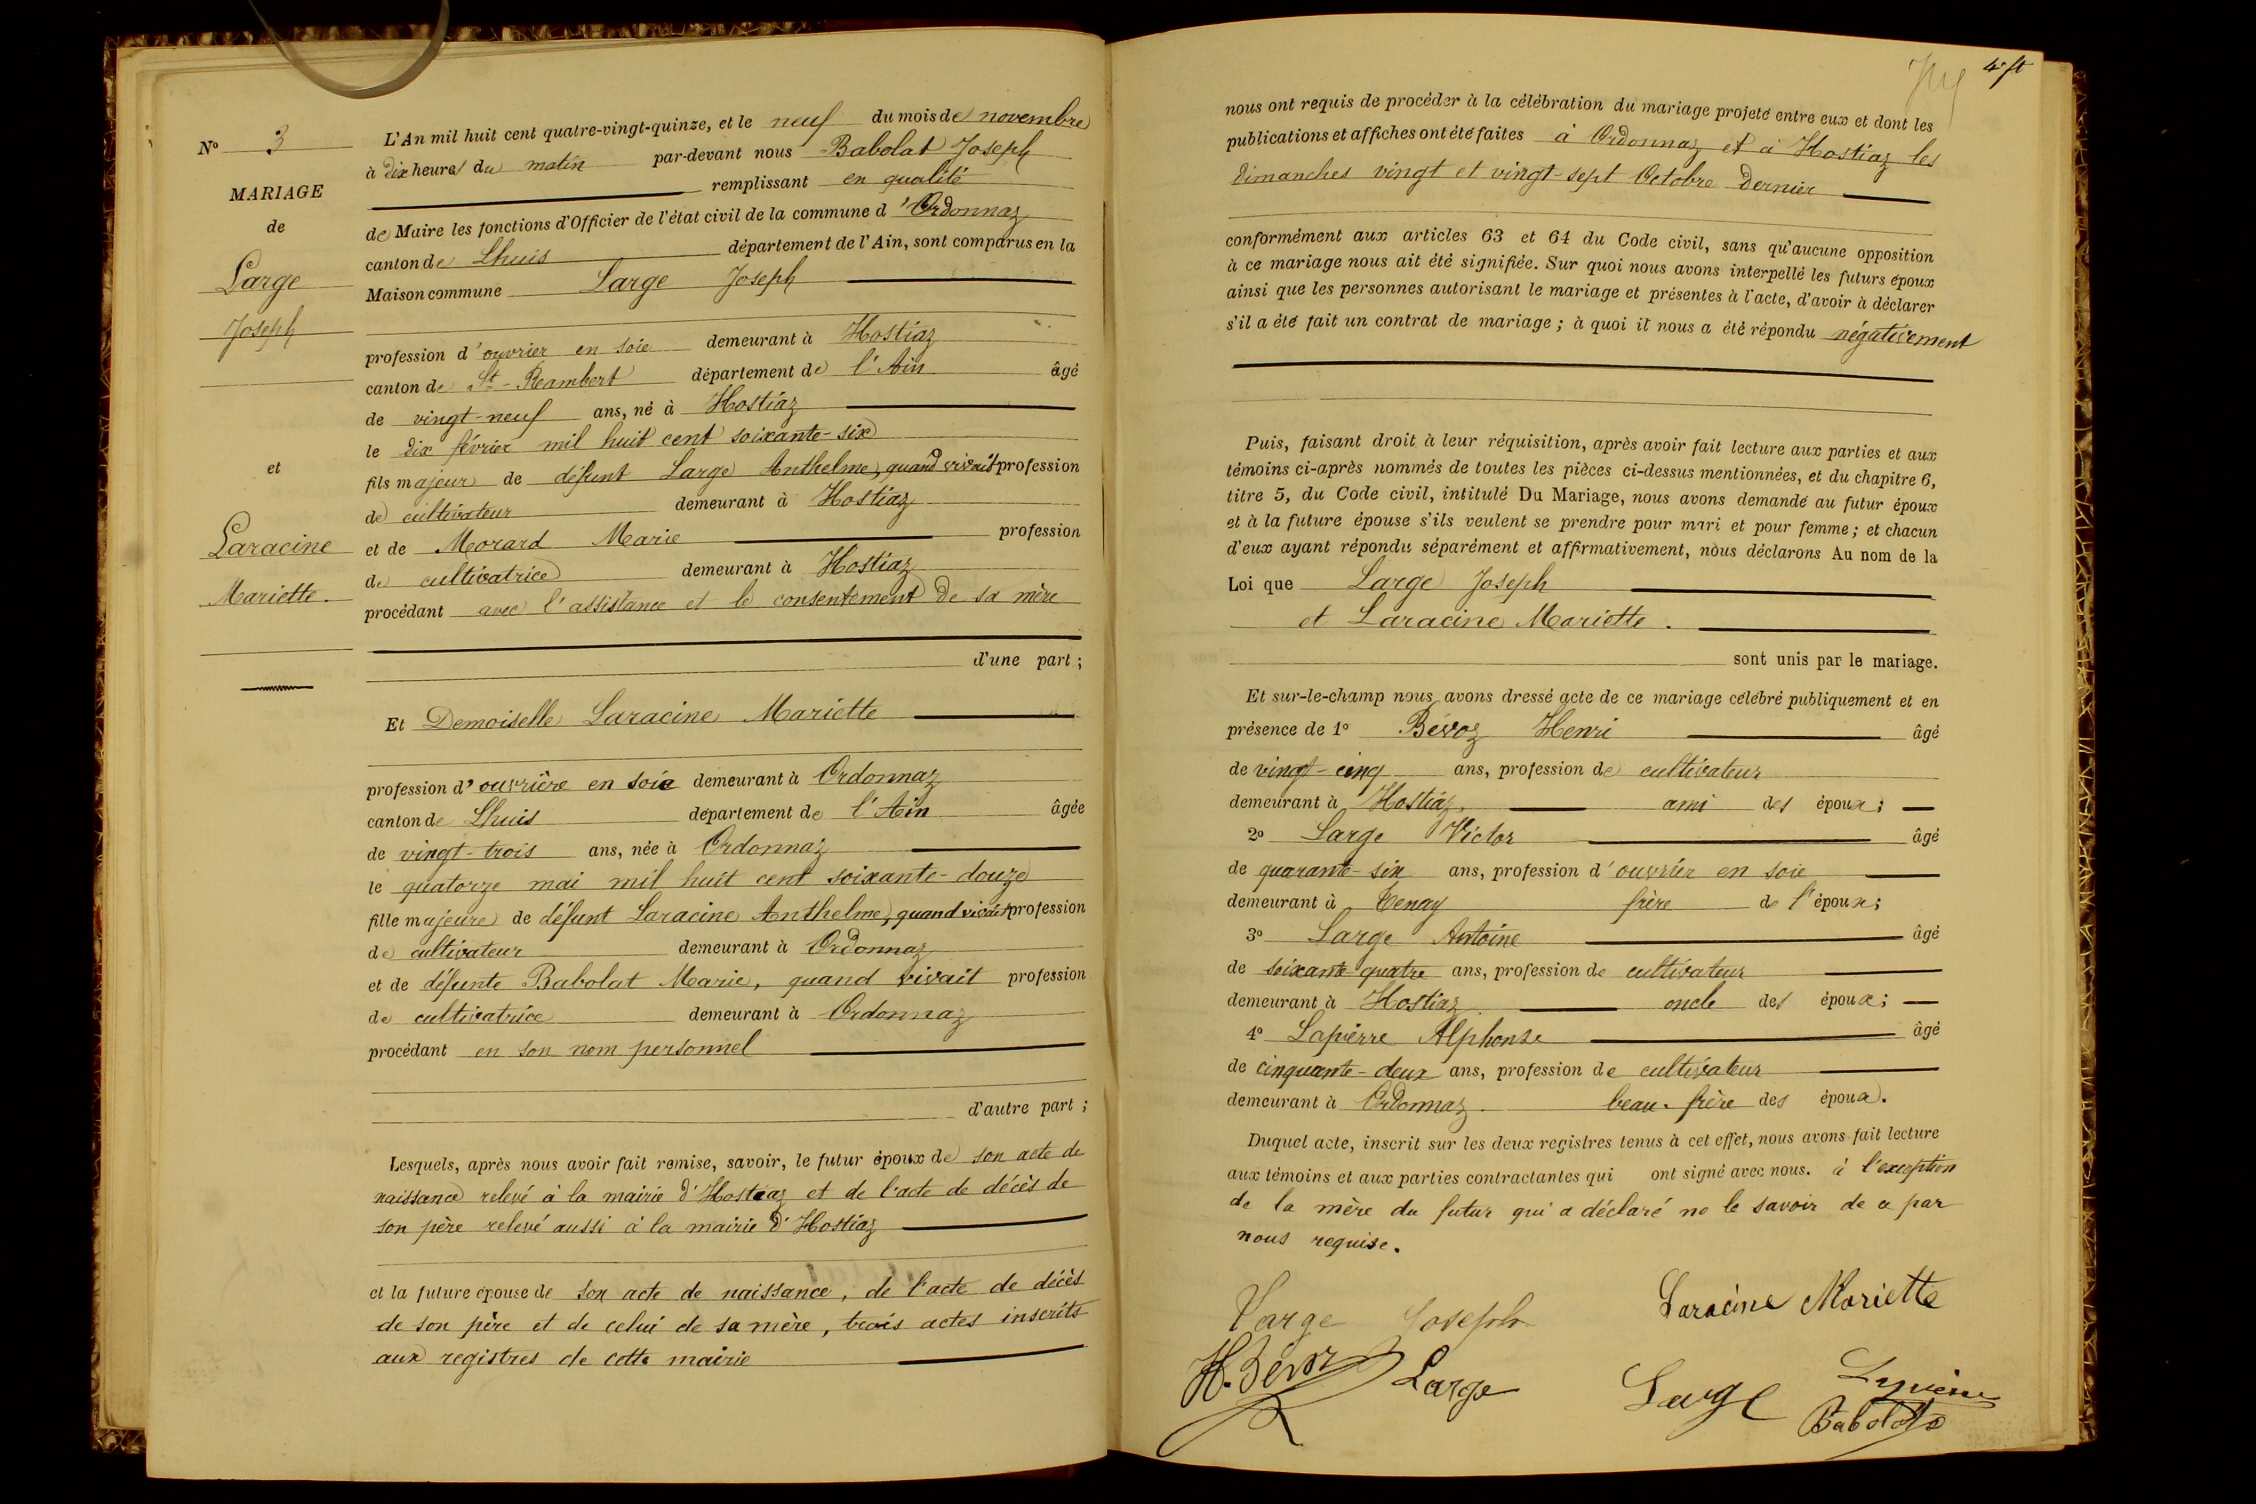 N° 3
MARIAGE
de
Large
Joseph
et
Laracine
Mariette.
L'An mil huit cent quatre-vingt-quinze, et le neuf du mois de novembre
à dix heures du matin par-devant nous Babolat Joseph
remplissant en qualité
de Maire les fonctions d'Officier de l'état civil de la commune d'Ordonnaz
canton de Lhuis département de l'Ain, sont comparus en la
Maison commune Large Joseph
profession d'ouvrier en soie demeurant à Hostiaz
canton de St-Rambert département de l'Ain âgé
de vingt-neuf ans, né à Hostiaz
le dix février mil huit cent soixante-six
fils majeur de défunt Large Anthelme, quand vivait profession
de cultivateur demeurant à Hostiaz
et de Morard Marie profession
de cultivatrice demeurant à Hostiaz
procédant avec l'assistance et le consentement de sa mère
d'une part ;
Et Demoiselle Laracine Mariette
profession d'ouvrière en soie demeurant à Ordonnaz
canton de Lhuis département de l'Ain âgée
de vingt-trois ans, née à Ordonnaz
le quatorze mai mil huit cent soixante-douze
fille majeure de défunt Laracine Anthelme, quand vivait profession
de cultivateur demeurant à Ordonnaz
et de défunte Babolat Marie, quand vivait profession
de cultivatrice demeurant à Ordonnaz
procédant en son nom personnel
d'autre part ;
Lesquels, après nous avoir fait remise, savoir, le futur époux de son acte de
naissance relevé à la mairie d'Hostiaz et de l'acte de décès de
son père relevé aussi à la mairie d'Hostiaz
et la future épouse de son acte de naissance, de l'acte de décès
de son père et de celui de sa mère, trois actes inscrits
aux registres de cette mairie
nous ont requis de procéder à la célébration du mariage projeté entre eux et dont les
publications et affiches ont été faites à Ordonnaz et à Hostiaz les
dimanches vingt et vingt-sept Octobre dernier
conformément aux articles 63 et 64 du Code civil, sans qu'aucune opposition
à ce mariage nous ait été signifiée. Sur quoi nous avons interpellé les futurs époux
ainsi que les personnes autorisant le mariage et présentes à l'acte, d'avoir à déclarer
s'il a été fait un contrat de mariage ; à quoi il nous a été répondu négativement
Puis, faisant droit à leur réquisition, après avoir fait lecture aux parties et aux
témoins ci-après nommés de toutes les pièces ci-dessus mentionnées, et du chapitre 6,
titre 5, du Code civil, intitulé Du Mariage, nous avons demandé au futur époux
et à la future épouse s'ils veulent se prendre pour mari et pour femme ; et chacun
d'eux ayant répondu séparément et affirmativement, nous déclarons Au nom de la
Loi que Large Joseph
et Laracine Mariette.
sont unis par le mariage.
Et sur-le-champ nous avons dressé acte de ce mariage célébré publiquement et en
présence de 1° Bévoz Henri âgé
de vingt-cinq ans, profession de cultivateur
demeurant à Hostiaz. ami des époux ;
2° Large Victor âgé
de quarante-six ans, profession d'ouvrier en soie
demeurant à Tenay frère de l'époux ;
3° Large Antoine âgé
de soixante quatre ans, profession de cultivateur
demeurant à Hostiaz. oncle des époux ;
4° Lapierre Alphonse âgé
de cinquante-deux ans, profession de cultivateur
demeurant à Ordonnaz. beau-frère des époux.
Duquel acte, inscrit sur les deux registres tenus à cet effet, nous avons fait lecture
aux témoins et aux parties contractantes qui ont signé avec nous. à l'exception
de la mère du futur qui a déclaré ne le savoir de a par
nous requise.
Large Joseph Laracine Mariette
H. Bévoz Large Large Lapierre
Babolat